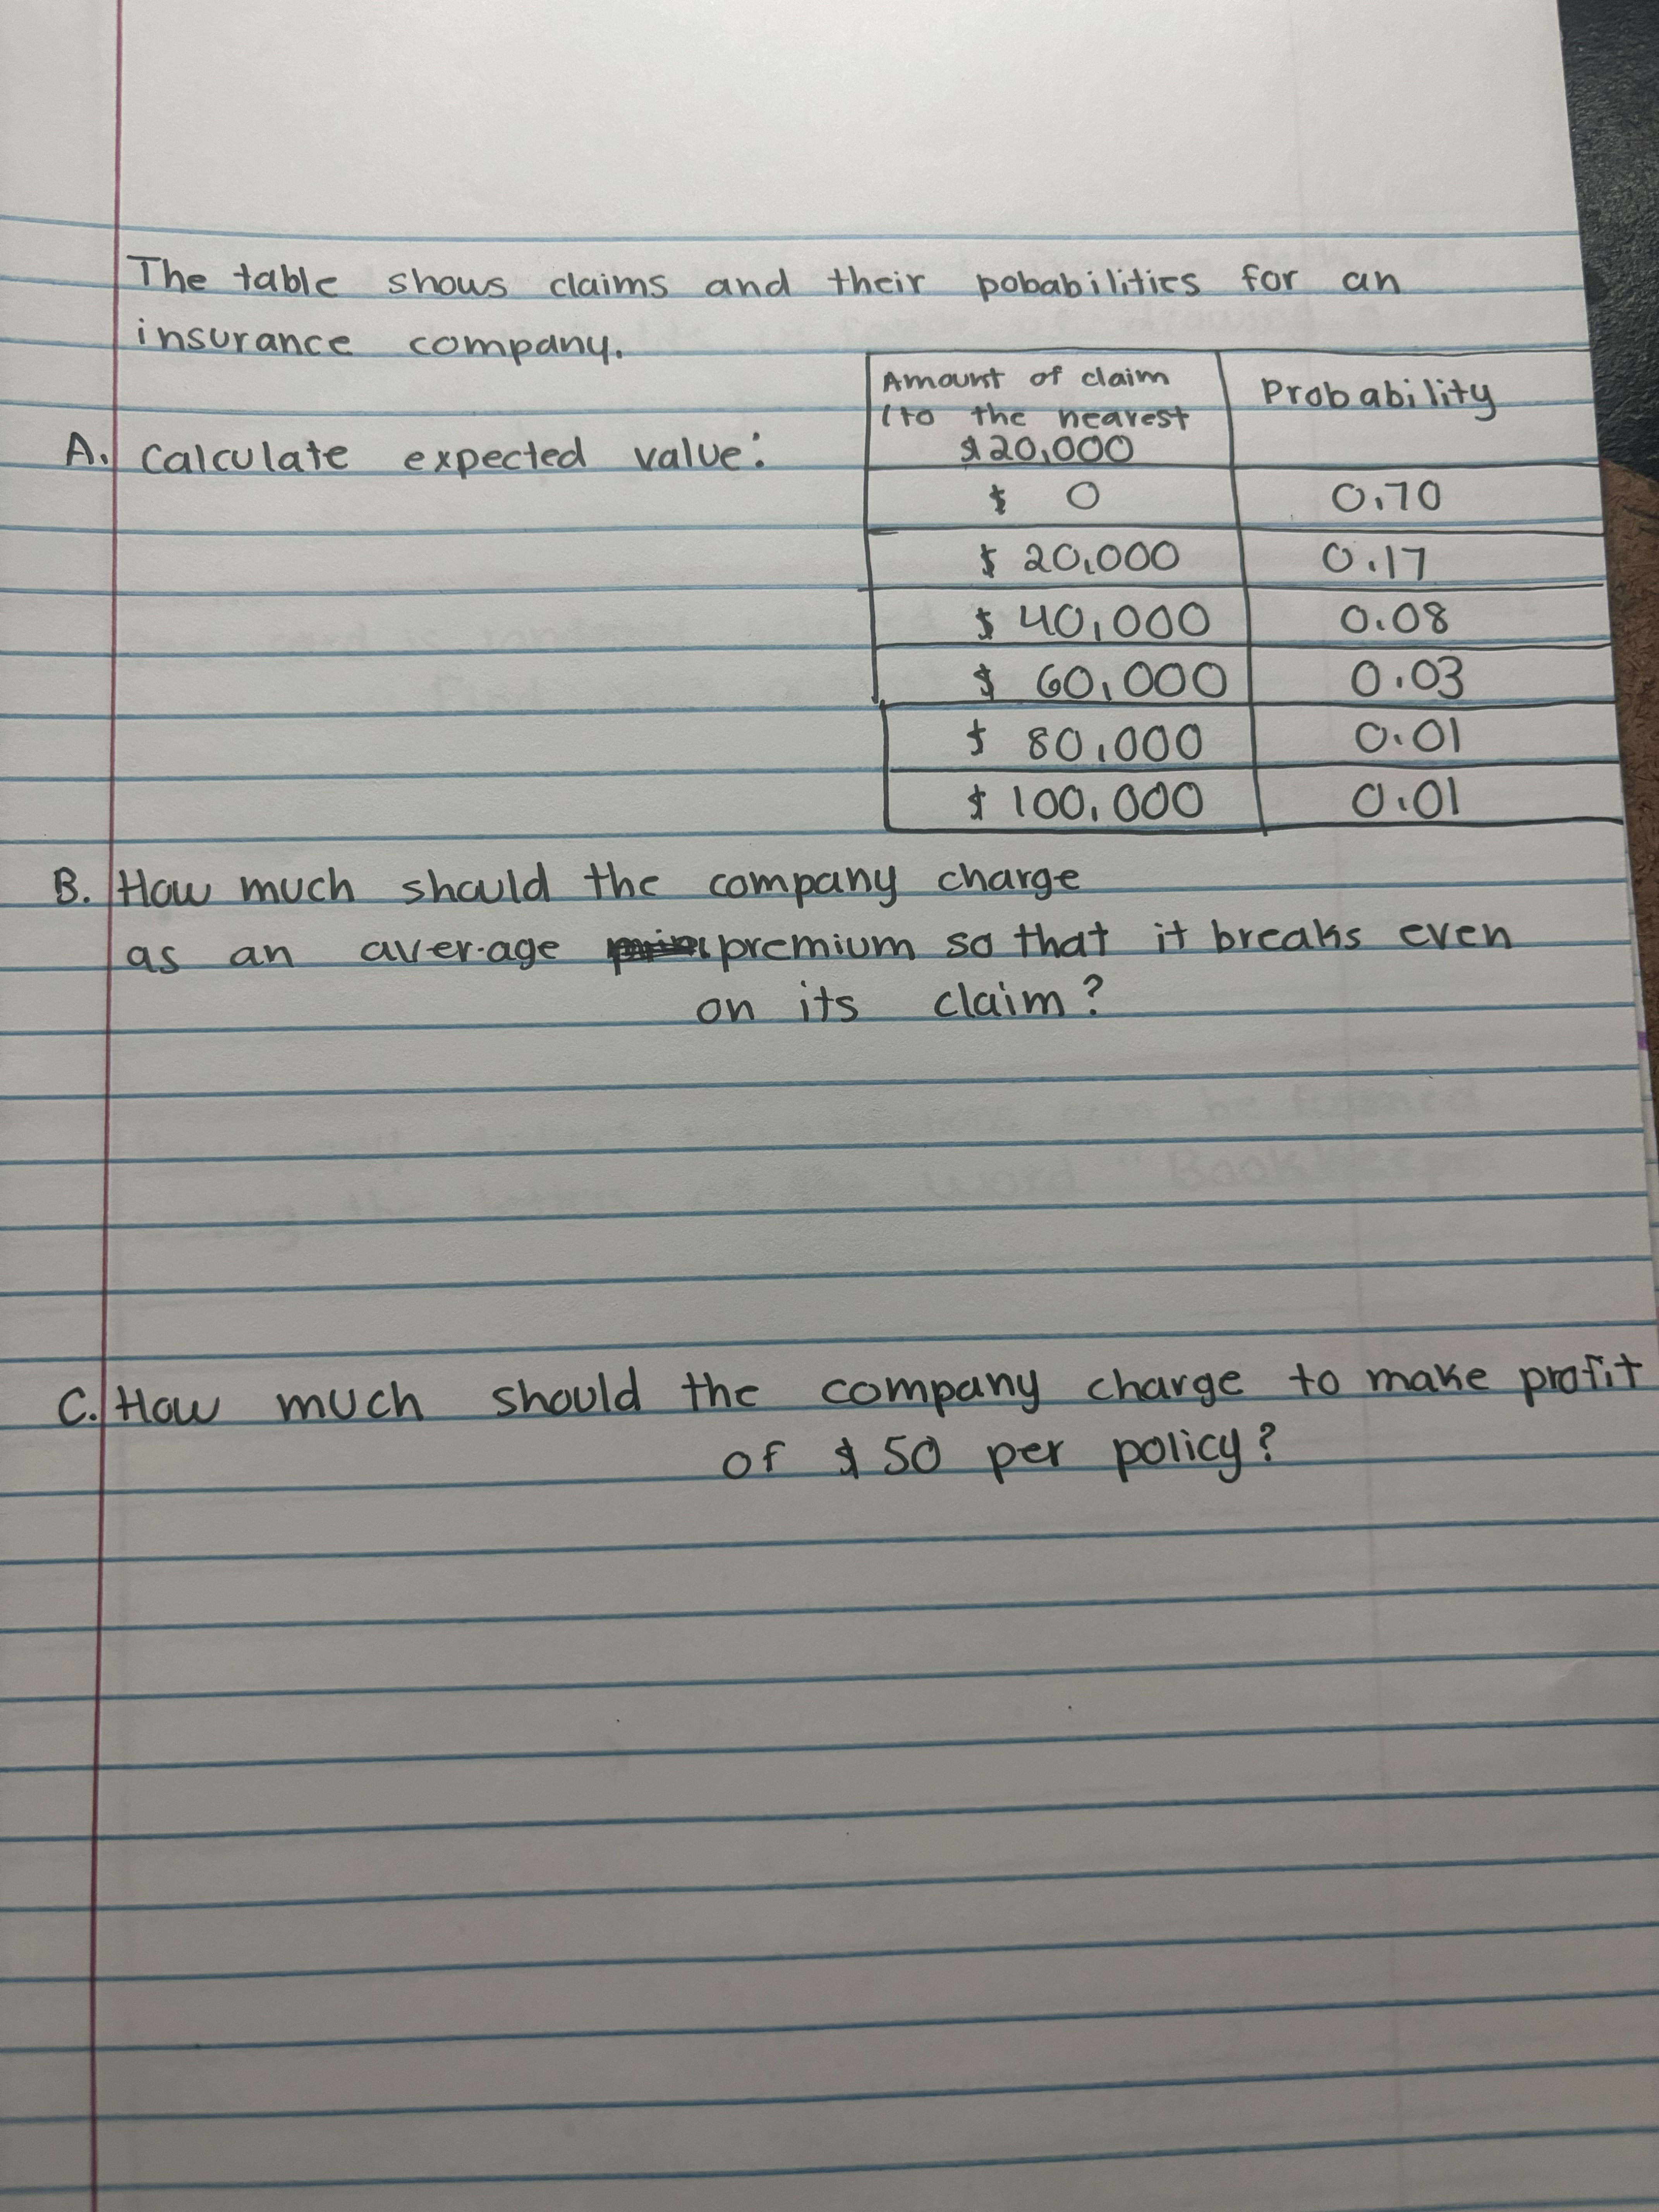 The table shows claims and their pobabilities for an
insurance company.
A. Calculate expected value:
Amount of claim
(to the nearest
$20,000
Probability
$ 0 0.70
$ 20,000 0.17
$ 40,000 0.08
$ 60,000 0.03
$ 80,000 0.01
$ 100,000 0.01
B. How much should the company charge
as an average premium so that it breaks even
on its claim?
C. How much should the company charge to make profit
of $50 per policy?